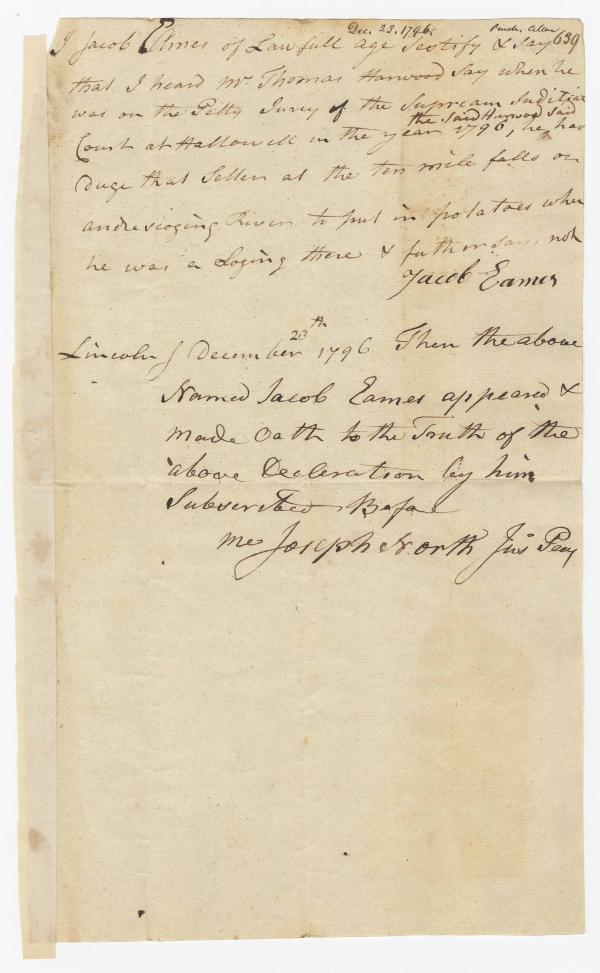 Dec. 23. 1796.
639
I Jacob Eames of Lawfull age Testify & Say
that I heard Mr. Thomas Harwood Say when he
was on the Petty Jurey of the Supream Juditial
the Said Harwood Said
Court at Hallowell in the year 1796, he had
Duge that Seller at the ten mile falls on
andrescoging River to put in potatoes when
he was a Loging there & futher Says not
Jacob Eames
Lincoln ʃ December 23th 1796 Then the above
Named Jacob Eames appeared &
made Oath to the Truth of the
above Decleration by him
Subscribed Before
me Joseph North Jus Peac